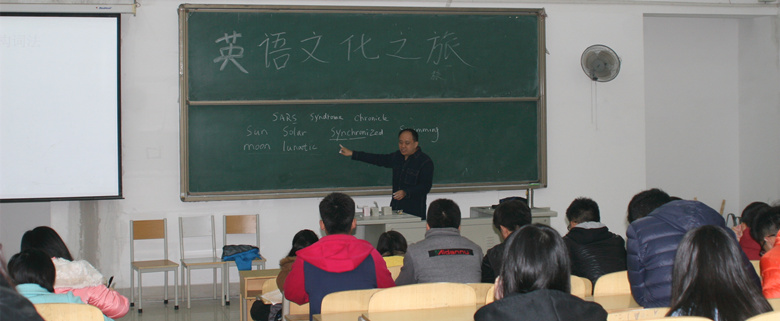 英语文化之旅
旅
SARS Syndrome Chronicle
Sun Solar Synchronized Swimming
moon lunatic